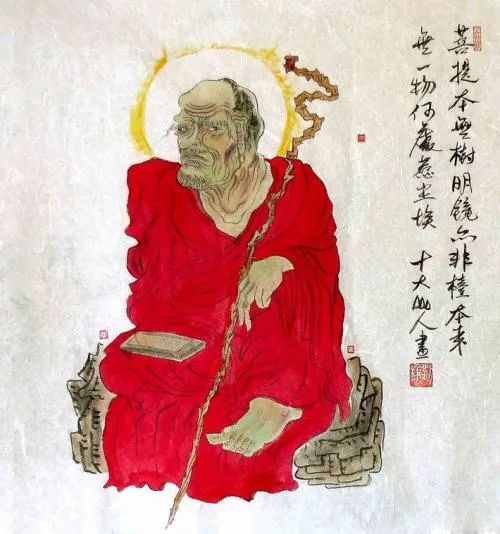 菩提本無樹明镜亦非檯本来
無一物何處惹尘埃 十大山人畫